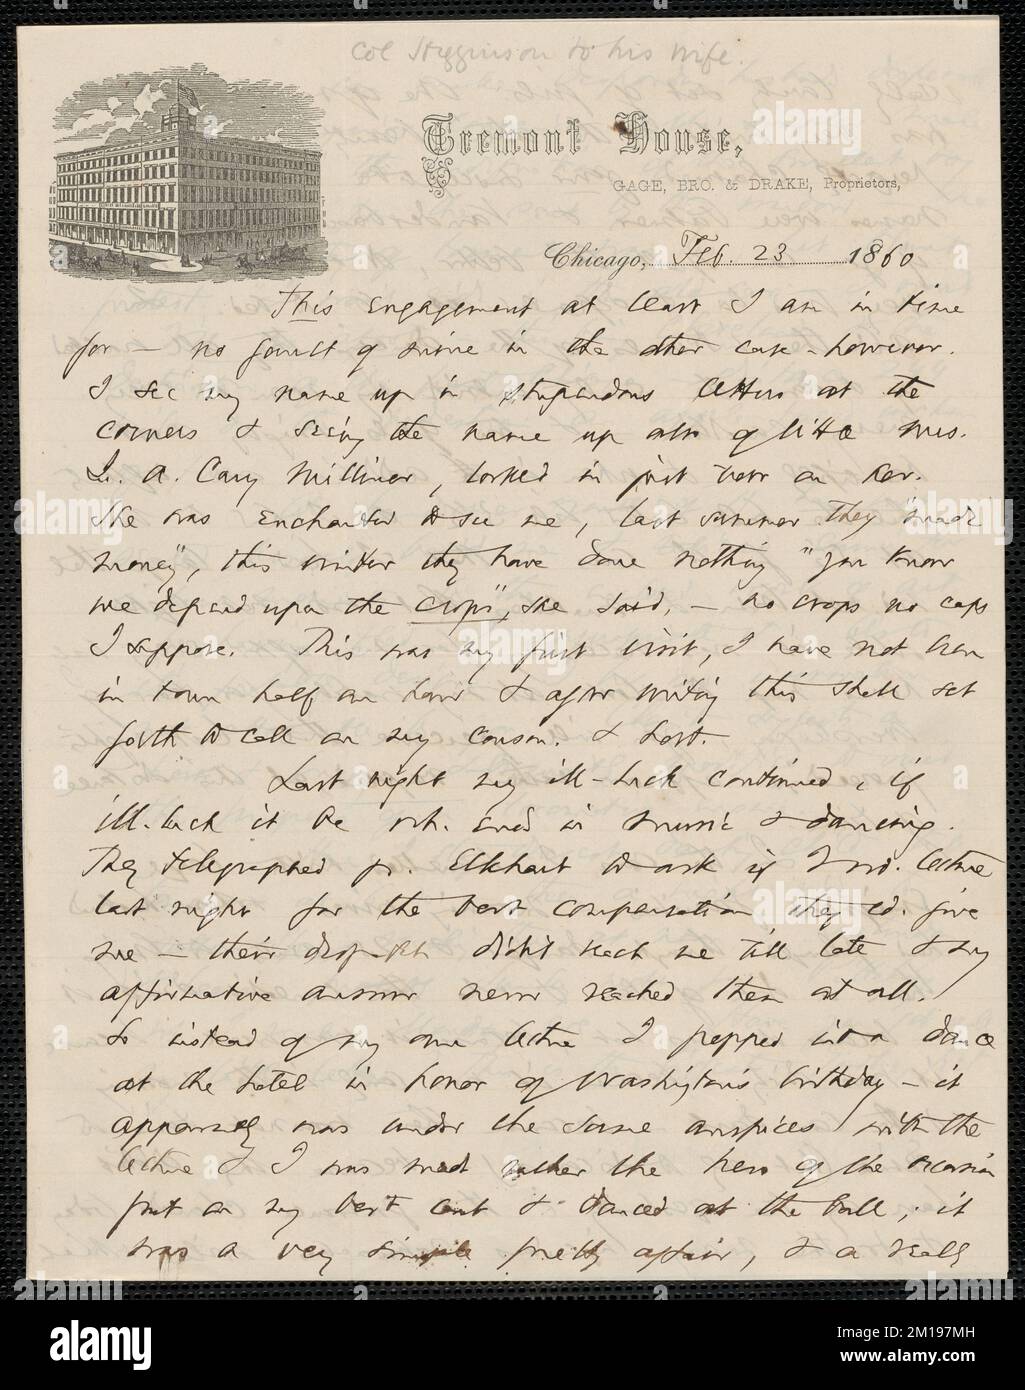 Col Higginson to his wife.
Tremont House,
GAGE, BRO. & DRAKE, Proprietors,
Chicago, Feb. 23 1860
This engagement at least I am in time
for — no fault of mine in the other case - however.
I see my name up in stupendous letters at the
corners & seeing the name up also of little Mrs.
L. A. Cary Milliner, looked in just now on her.
She was enchanted to see me, last summer they "made
money", this winter they have done nothing "you know
we depend upon the crops", she said, — no crops no caps
I suppose. This was my first visit, I have not been
in town half an hour & after writing this shall set
forth to call on my cousin. & host.
Last night my ill-luck continued, if
ill-luck it be wh. ends in music & dancing.
They telegraphed fr. Elkhart to ask if I wd. lecture
last night for the best compensation they cd. give
me — their dispatch didn't reach me till late & my
affirmative answer never reached them at all.
So instead of my own lecture I popped into a dance
at the hotel in honor of Washington's birthday — it
apparently was under the same auspices with the
lecture & I was made rather the hero of the occasion
put on my best coat & danced at the ball; it
was a very simple pretty affair, & a really
alamy
Image ID: 2M197MH
www.alamy.com